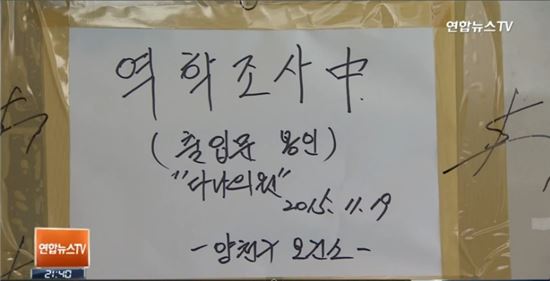 연합뉴스TV
역학조사中.
(출입문 봉인)
"다나의원"
2015. 11. 19
-양천구 보건소-
연합뉴스TV
21:40